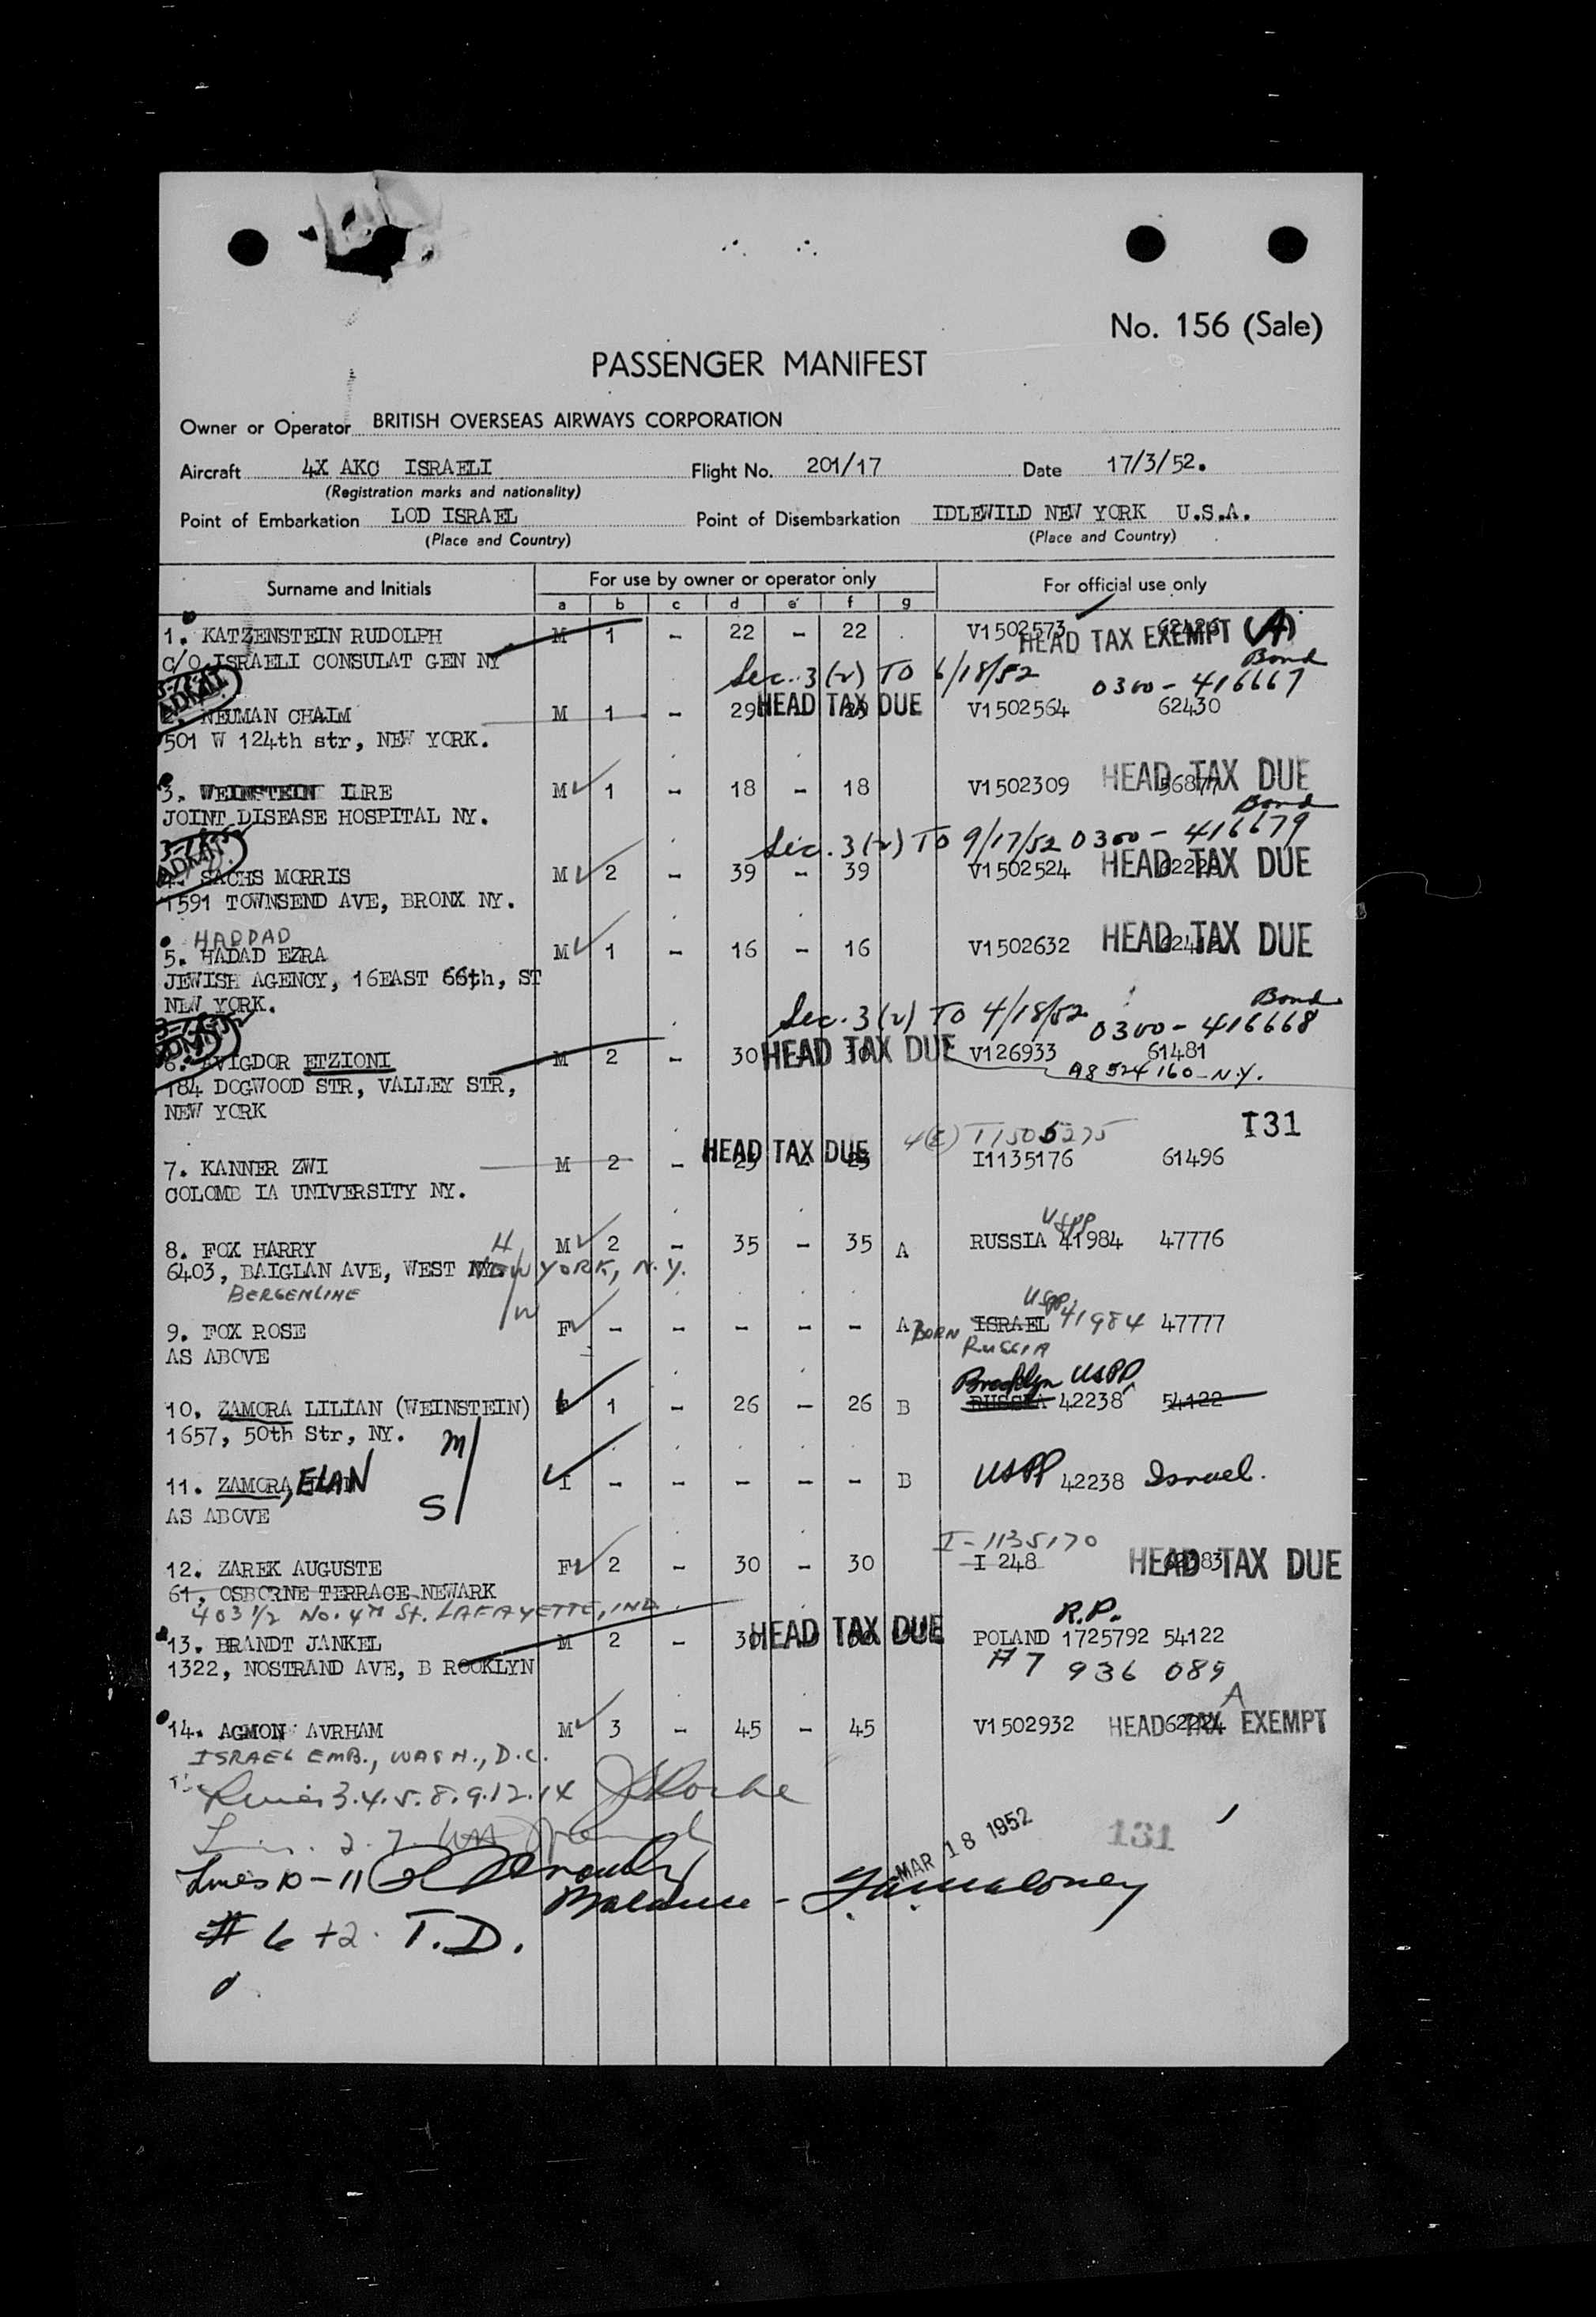 No. 156 (Sale)
PASSENGER MANIFEST
Owner or Operator BRITISH OVERSEAS AIRWAYS CORPORATION
Aircraft 4X AKC ISRAELI Flight No. 201/17 Date 17/3/52.
(Registration marks and nationality)
Point of Embarkation LOD ISRAEL Point of Disembarkation IDLEWILD NEW YORK U.S.A.
(Place and Country) (Place and Country)
Surname and Initials For use by owner or operator only For official use only
a b c d e f g
1. KATZENSTEIN RUDOLPH M 1 - 22 - 22 V1502573 HEAD TAX EXEMPT (A)
C/O ISRAELI CONSULAT GEN NY
Sec. 3(2) TO 6/18/52 Bond
0300-416667
ADMT
2. NEUMAN CHAIM M 1 - 29 HEAD TAX DUE V1502564 62430
501 W 124th str, NEW YORK.
3. WEINSTEIN IMRE M 1 - 18 - 18 V1502309 HEAD TAX DUE
JOINT DISEASE HOSPITAL NY.
Bond
Sec. 3(2) TO 9/17/52 0300-416679
ADMT
4. SACHS MORRIS M 2 - 39 - 39 V1502524 HEAD TAX DUE
1591 TOWNSEND AVE, BRONX NY.
HADDAD
5. HADAD EZRA M 1 - 16 - 16 V1502632 HEAD TAX DUE
JEWISH AGENCY, 16EAST 66th, ST
NEW YORK.
Sec. 3(2) TO 4/18/52 Bond
0300-416668
ADMT
6. AVIGDOR ETZIONI M 2 - 30 HEAD TAX DUE V126933 61481
A8 524 160-N.Y.
184 DOGWOOD STR, VALLEY STR,
NEW YORK
I31
4(E)
7. KANNER ZWI M 2 - HEAD TAX DUE I1135176 61496
COLOMB IA UNIVERSITY NY.
USPP
8. FOX HARRY H M 2 - 35 - 35 A RUSSIA 41984 47776
6403, BAIGLAN AVE, WEST NEW YORK, N.Y.
BERGENLINE
W USPP
9. FOX ROSE F - - - - - A BORN ISRAEL 41984 47777
RUSSIA
AS ABOVE
Brooklyn USPP
10. ZAMORA LILIAN (WEINSTEIN) 1 - 26 - 26 B RUSSIA 42238 54122
1657, 50th Str, NY.
M
11. ZAMORA, ELAN I - - - - - B USPP 42238 Israel.
S
AS ABOVE
I-1135170
12. ZAREK AUGUSTE F 2 - 30 - 30 I 248 HEAD TAX DUE
61, OSBORNE TERRACE NEWARK
403 1/2 No. 4TH St. LAFAYETTE, IND
R.P.
13. BRANDT JANKEL M 2 - HEAD TAX DUE POLAND 1725792 54122
A7 936 089
1322, NOSTRAND AVE, B ROOKLYN
A
14. AGMON AVRHAM M 3 - 45 - 45 V1502932 HEAD TAX EXEMPT
ISRAEL EMB., WASH., D.C.
3.4.5.8.9.12.14
2.7.
MAR 18 1952 131
Lines 10-11
Balance -
# 6 + 2. T.D.